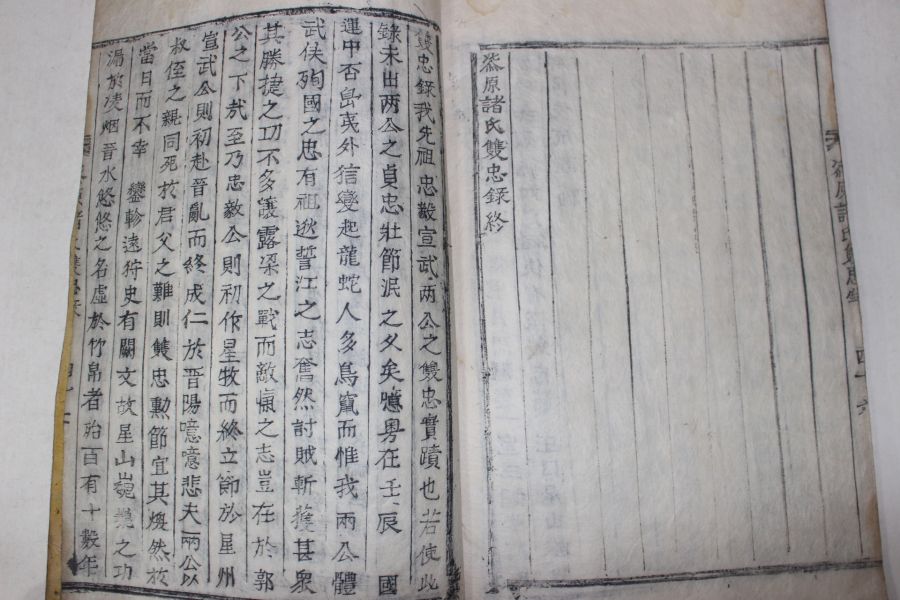 漆原諸氏雙忠錄 四十六
漆原諸氏雙忠錄終
雙忠錄我先祖忠毅宣武兩公之雙忠實蹟也若使此
錄未出兩公之貞忠壯節泯之久矣噫粤在壬辰 國
運中否島夷外猘變起龍蛇人多鳥竄而惟我兩公體
武侯殉國之忠有祖逖誓江之志奮然討賊斬獲甚衆
其勝捷之功不多讓露梁之戰而敵愾之志豈在於郭
公之下哉至乃忠毅公則初作星牧而終立節於星州
宣武公則初赴晉亂而終成仁於晉陽噫噫悲夫兩公以
叔侄之親同死於君父之難則雙忠勳節宜其煥然於
當日而不幸 鑾軫遠狩史有闕文故星山巍巍之功
漏於凌烟晉水悠悠之名虛於竹帛者殆百有十數年